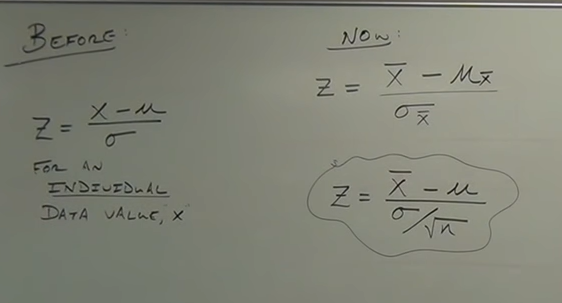 BEFORE:
Z = X - μ / σ
FOR AN
INDIVIDUAL
DATA VALUE, "X"
NOW:
Z = X̄ - μx̄ / σx̄
Z = X̄ - μ / σ/√n